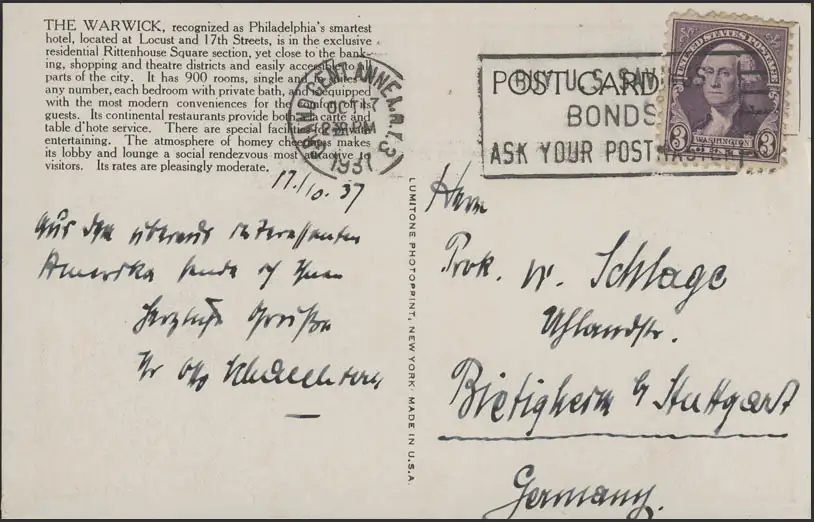 THE WARWICK, recognized as Philadelphia's smartest
hotel, located at Locust and 17th Streets, is in the exclusive
residential Rittenhouse Square section, yet close to the bank-
ing, shopping and theatre districts and easily accessible to all
parts of the city. It has 900 rooms, single and in suites of
any number, each bedroom with private bath, and equipped
with the most modern conveniences for the comfort of its
guests. Its continental restaurants provide both a la carte and
table d'hote service. There are special facilities for private
entertaining. The atmosphere of homey cheeriness makes
its lobby and lounge a social rendezvous most attractive to
visitors. Its rates are pleasingly moderate.
GRAND CENT. ANNEX N.Y. 3
OCT 17
PM
1937
POSTCARD
BUY U.S. SAVINGS
BONDS
ASK YOUR POSTMASTER
UNITED STATES POSTAGE
3 WASHINGTON 3
17./10. 37
Aus dem überaus interessanten
Amerika sende ich Ihnen
herzliche Grüße
Ihr Otto
LUMITONE PHOTOPRINT, NEW YORK· MADE IN U.S.A.
Herrn
Prok. W. Schlage
Uhlandstr.
Bietigheim b/ Stuttgart
Germany.